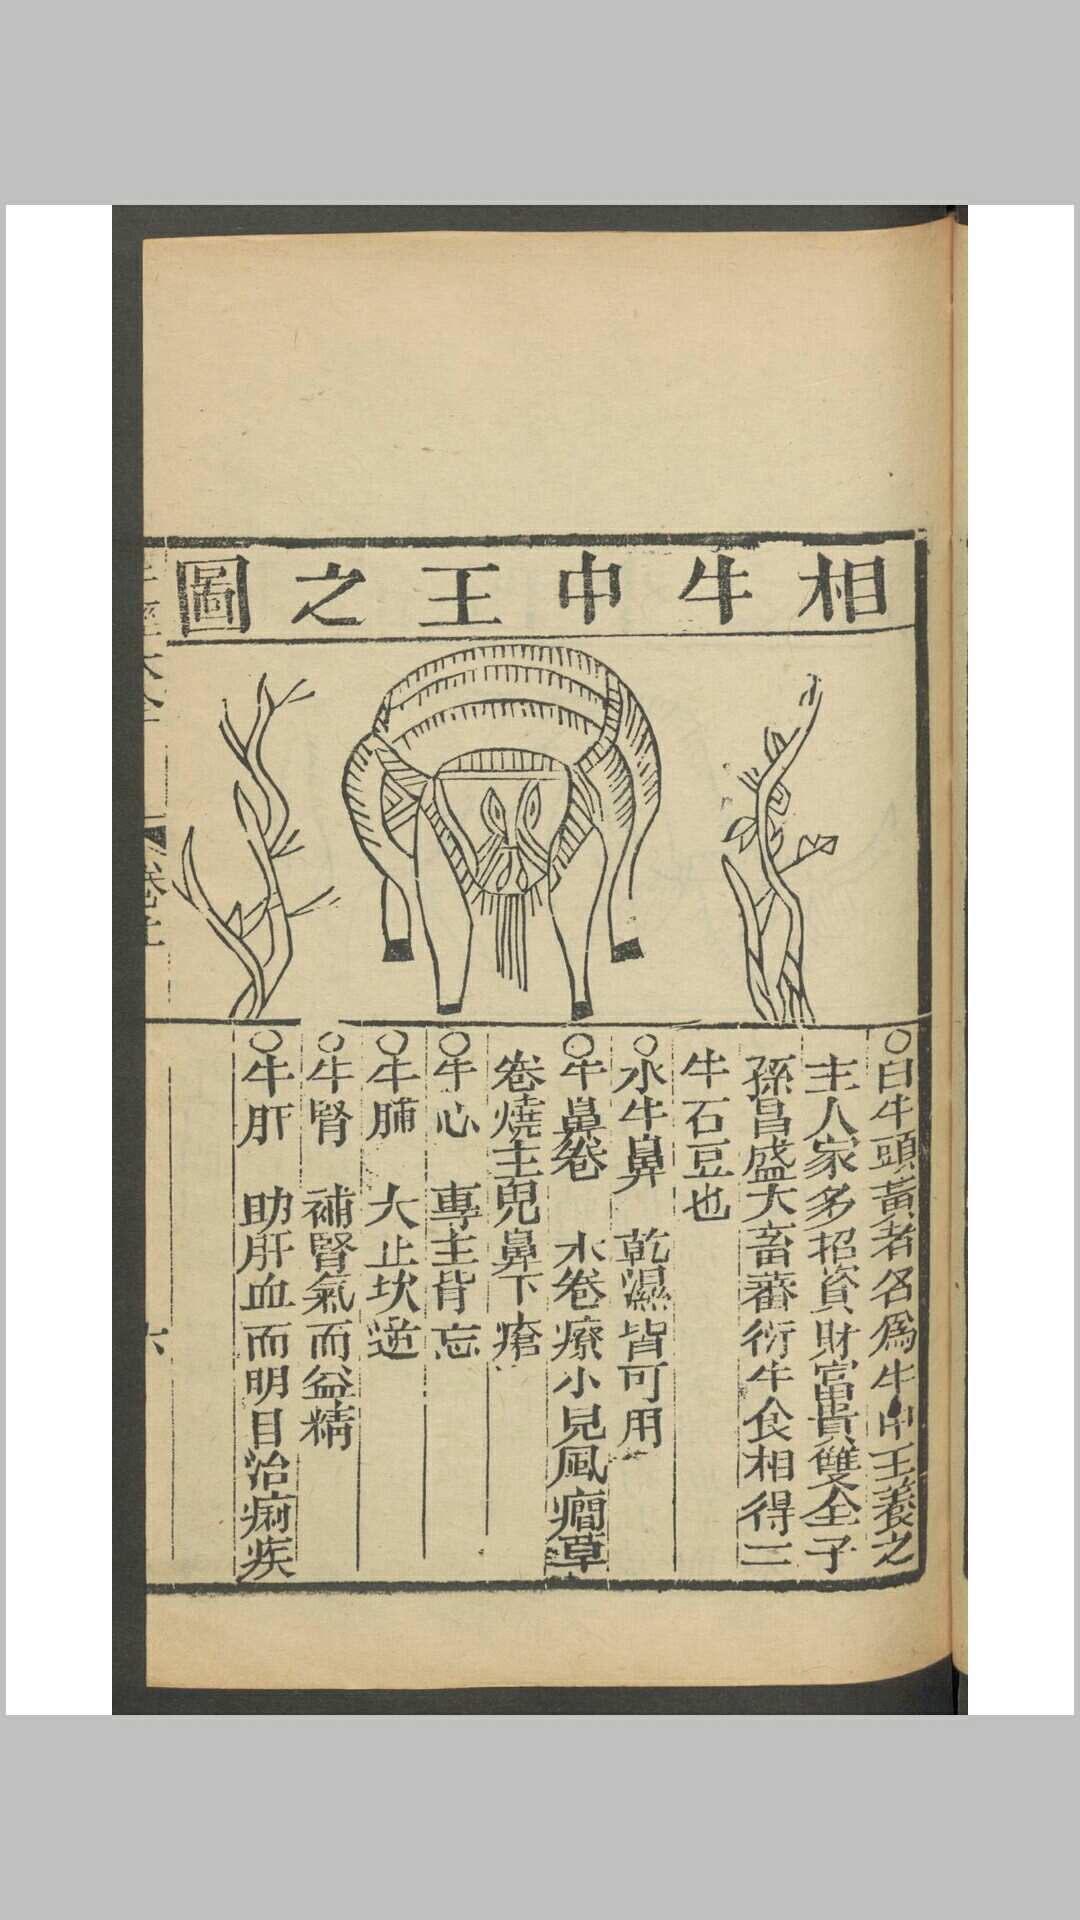 相牛中王之圖
○白牛頭黃者名爲牛中王養之
主人家多招資財富貴雙全子
孫昌盛大畜蕃衍牛食相得二
牛石豆也
○水牛鼻 乾濕皆可用
○牛鼻卷 水卷療小兒風癇草
卷燒主兒鼻下瘡
○牛心 專主背忘
○牛脯 大止坎逆
○牛腎 補腎氣而益精
○牛肝 助肝血而明目治痢疾
六